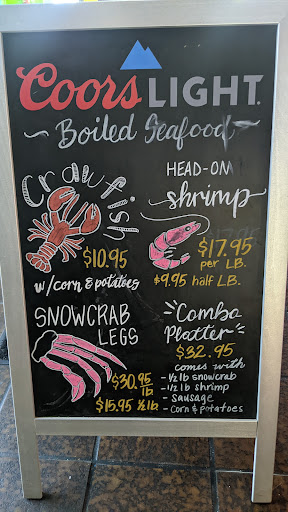 Coors LIGHT
~ Boiled Seafood ~
Crawfish
$10.95
w/corn & potatoes
HEAD-ON
shrimp
$17.95
per LB.
$9.95 half LB.
SNOWCRAB
LEGS
$30.95
lb
$15.95 ½lb
"Combo
Platter"
$32.95
comes with
- 1/2 lb snowcrab
- 1/2 lb shrimp
- Sausage
- Corn & potatoes